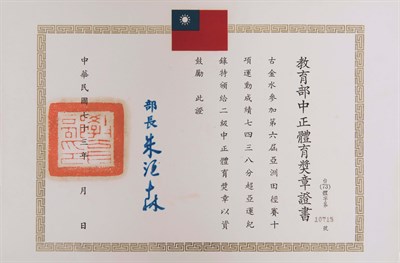 教育部中正體育獎章證書
古金水參加第六屆亞洲田徑賽十
項運動成績七四三八分超亞運紀
錄特頒給二級中正體育獎章以資
鼓勵 此證
部長 朱匯森
中華民國七十三年 月 日